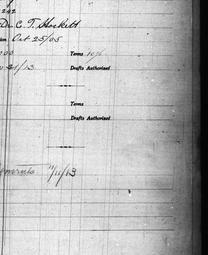 242
Dr. C. T. Hockett
Oct 25/05
Terms 10%
21/13 Drafts Authorized
Terms
Drafts Authorized
11/11/13